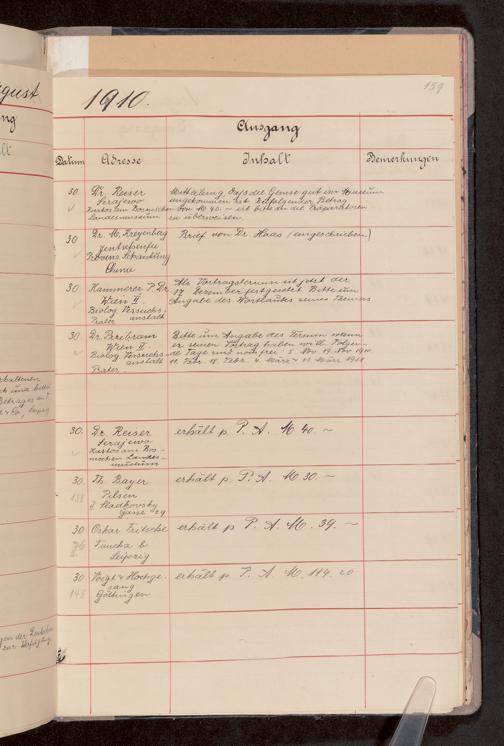 159
1910.
Ausgang
Datum Adresse Inhalt Bemerkungen
30. Dr. Reiser
Serajewo
Kustos am Bosnischen
Landesmuseum
Mitteilung daß die Gemse gut im Museum
angekommen ist. Beifolgender Betrag
von M 40.— ist bitte an die Präparatoren
zu überweisen.
30 Dr. M. Kreyenberg
Tientsehenfu
Provinz Schantung
China
Brief von Dr. Haas (eingeschrieben)
30 Kammerer P. Dr.
Wien II.
Biolog. Versuchs-
Prater anstalt
Als Vortragstermin ist jetzt der
17. Dezember festgesetzt. Bitte um
Angabe des Wortlautes seines Themas
30 Dr. Przibram
Wien II.
Biolog. Versuchs-
anstalt
Prater
Bitte um Angabe des Termin wann
er seinen Vortrag halten will. Folgen-
de Tage sind noch frei: 5. Nov. 19. Nov. 1910
11. Febr. 18. Febr. 4. März 11. März 1911
30. Dr. Reiser
Serajewo
Kustos am Bos-
nischen Landes-
museum
erhält p. P. A. M. 40. —
30. Th. Bayer
158 Pilsen
Sladkovsky
Gasse 29
erhält p. P. A. M 30. —
30 Oskar Fritsche
76 Taucha b.
Leipzig
erhält p. P. A. M. 39. —
30 Voigt & Hochge-
sang
148 Göttingen
erhält p. P. A. M. 114. 20